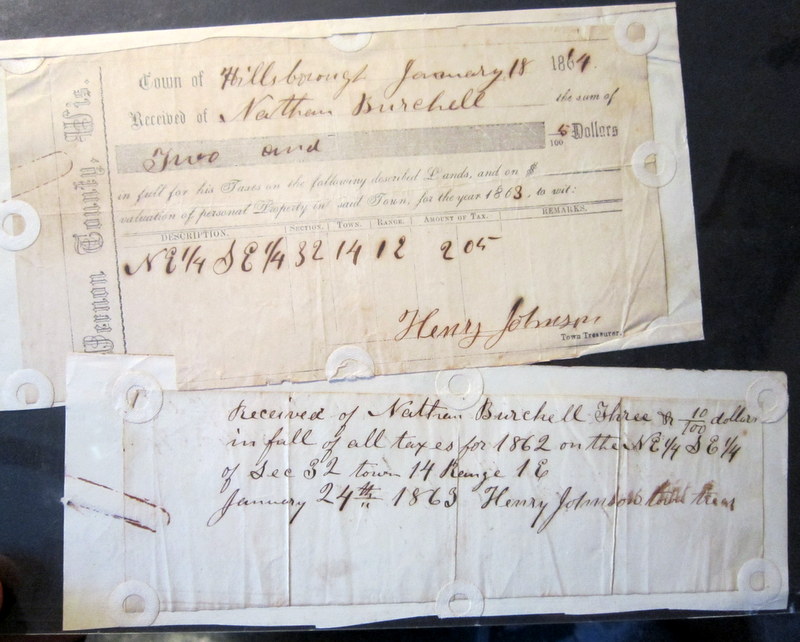 Vernon County, Wis.
Town of Hillsborough January 18 1864.
Received of Nathan Burchell the sum of
Two and 5/100 Dollars
in full for his Taxes on the following described Lands, and on $
valuation of personal Property in said Town, for the year 1863. to wit:
DESCRIPTION. SECTION. TOWN. RANGE. AMOUNT OF TAX. REMARKS.
NE 1/4 SE 1/4 32 14 1 E 2 05
Henry Johnson
Town Treasurer.
Received of Nathan Burchell Three & 10/100 dollars
in full of all taxes for 1862 on the NE 1/4 SE 1/4
of Sec 32 town 14 Range 1 E
January 24th 1863 Henry Johnson town